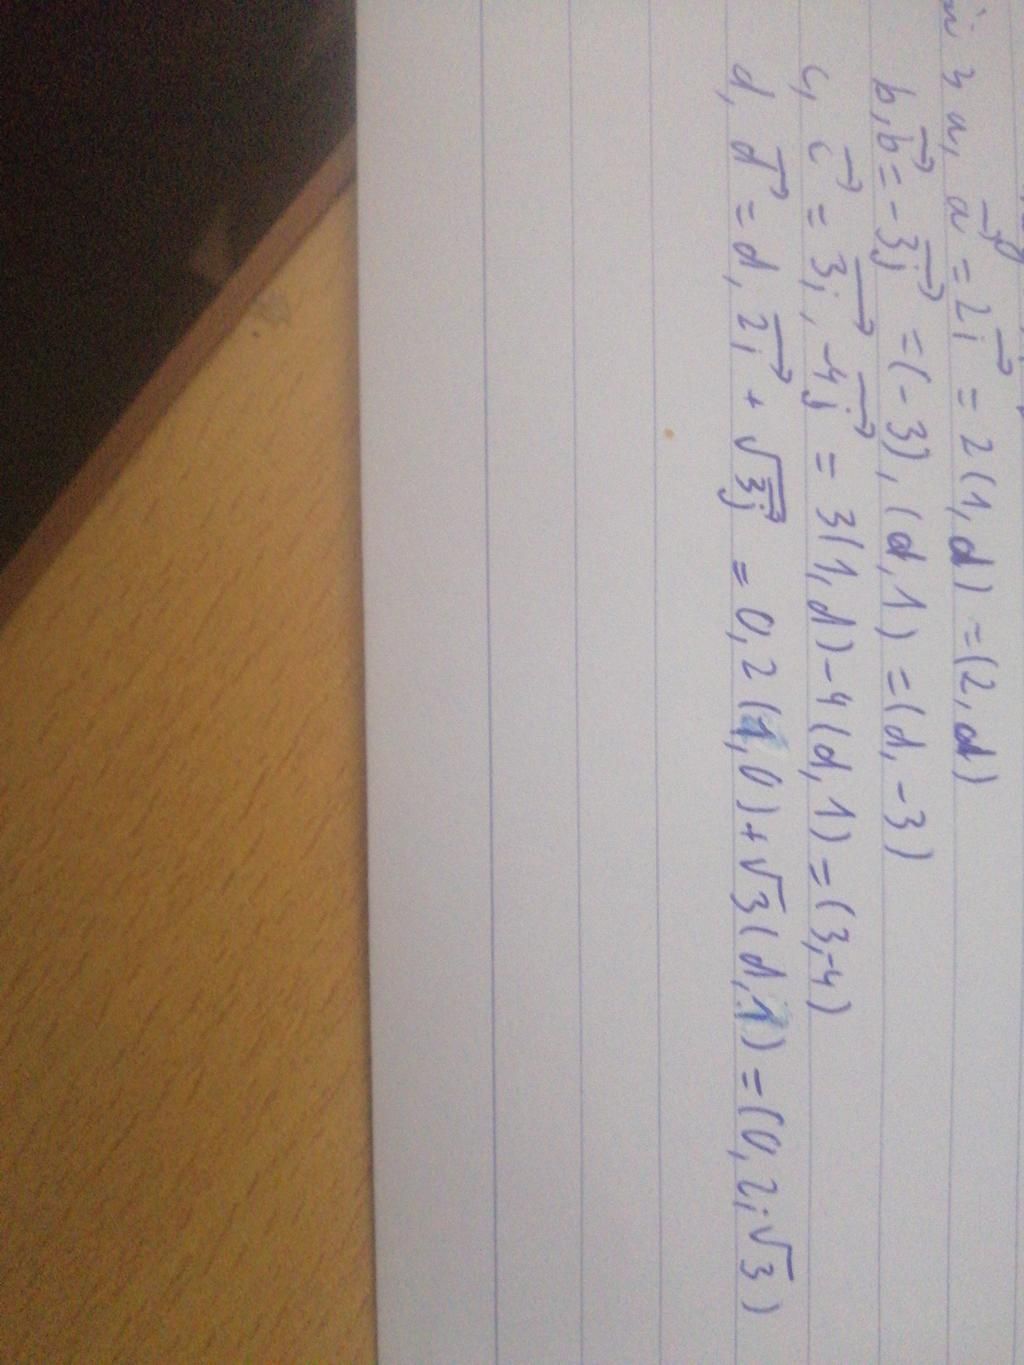 3 a, a⃗ = 2i⃗ = 2(1,0) =(2,0)
b, b⃗ = -3j⃗ =(-3),(0,1) =(0,-3)
c, c⃗ = 3i⃗, -4j⃗ = 3(1,0)-4(0,1) =(3,-4)
d, d⃗ = 0,2i⃗ + √3j⃗ = 0,2(1,0)+√3(0,1) =(0,2;√3)